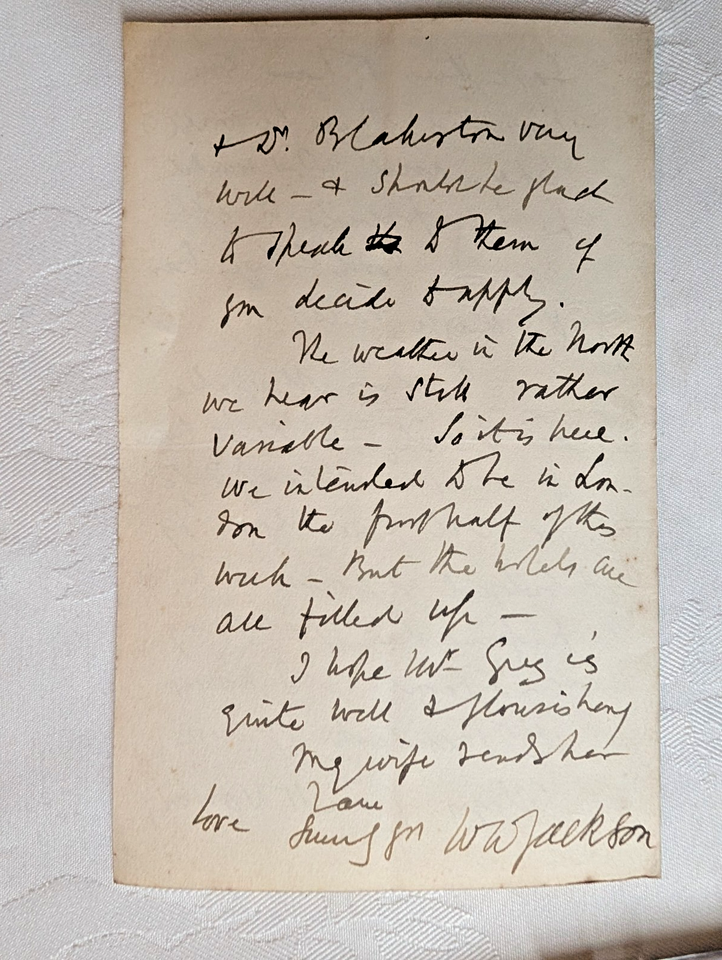 & Dr. Blakiston very
well – & should be glad
to speak to them if
you decide to apply.
The weather in the North
we hear is still rather
variable – So it is here.
We intended to be in Lon-
don the first half of this
week – But the hotels are
all filled up –
I hope Mr Greg is
quite well & flourishing
My wife sends her
love
I am
W W Jackson